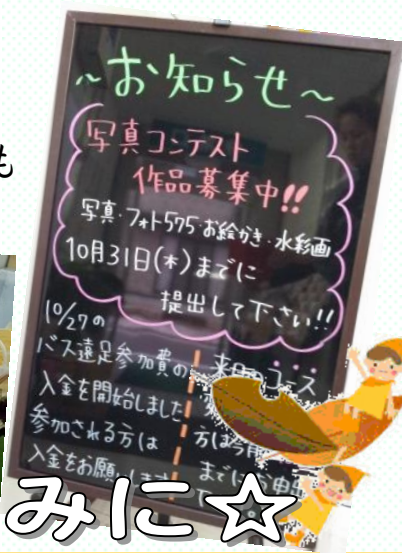 も
～お知らせ～
写真コンテスト
作品募集中!!
写真・フォト575・お絵かき・水彩画
10月31日(木)までに
提出して下さい!!
10/27の
バス遠足参加費の
入金を開始しました
参加される方は
入金をお願いします
来月のコース
方は今
までにお申
みに☆